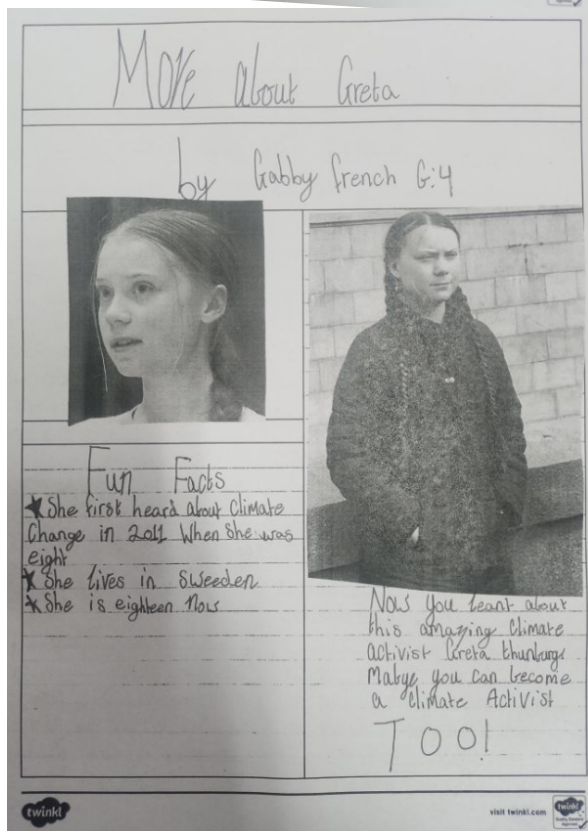 More about Greta
by Gabby French G:4
Fun Facts
★She first heard about climate
Change in 2011 When she was
eight
★She lives in Sweeden
★She is eighteen now
Now you leant about
this amazing climate
activist Greta thunburg
Mabye you can become
a climate Activist
TOO!
twinkl
visit twinkl.com
twinkl